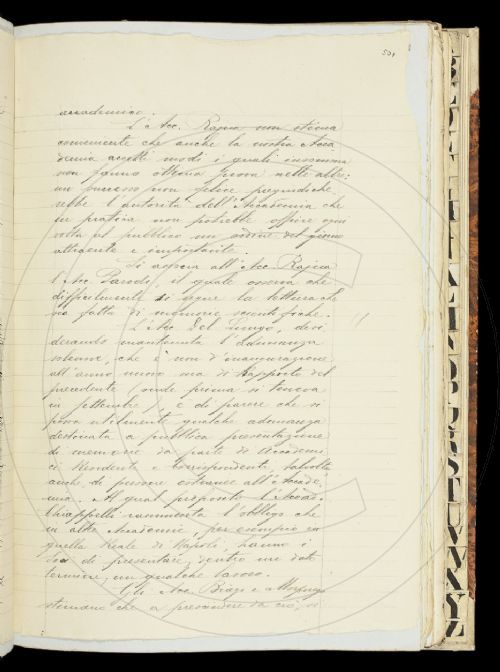 501
accademico.
L'Acc. Rajna non stima
conveniente che anche la nostra Acca
demia accetti modi i quali insomma
non fanno ottima prova nelle altre:
un successo non felice pregiudiche
rebbe l'autorità dell'Accademia che
in pratica non potrebbe offrire ogni
volta al pubblico un ordine del giorno
attraente e importante.
Si associa all'Acc. Rajna
l'Acc. Parodi, il quale osserva che
difficilmente si segue la lettura che
sia fatta di memorie scientifiche.
L'Acc. Del Lungo, desi
derando mantenuta l'adunanza
solenne, che è non d'inaugurazione
all'anno nuovo ma di rapporto del
precedente (onde prima si teneva
in settembre) è di parere che si
possa utilmente qualche adunanza
destinare a pubblica presentazione
di memorie da parte di Accademi
ci Residenti e Corrispondenti, talvolta
anche di persone estranee all'Accade
mia. Al qual proposito l'Accad.
Chiappelli rammenta l'obbligo che
in altre Accademie per esempio in
quella Reale di Napoli hanno i
Soci di presentare, dentro un dato
termine, un qualche lavoro.
Gli Acc. Biagi e
stimano che a prescindere da ciò, si
B
L
N
O
P
R
S
T
U
V
X
Y
Z